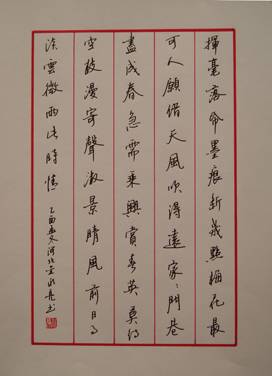 揮毫落帋墨痕新幾點梅花最
可人願借天風吹得遠家〻門巷
盡成春急需乘興賞春英莫待
空枝漫寄聲淑景晴風前日事
淡雲微雨此時情 乙酉 河北 永亮书